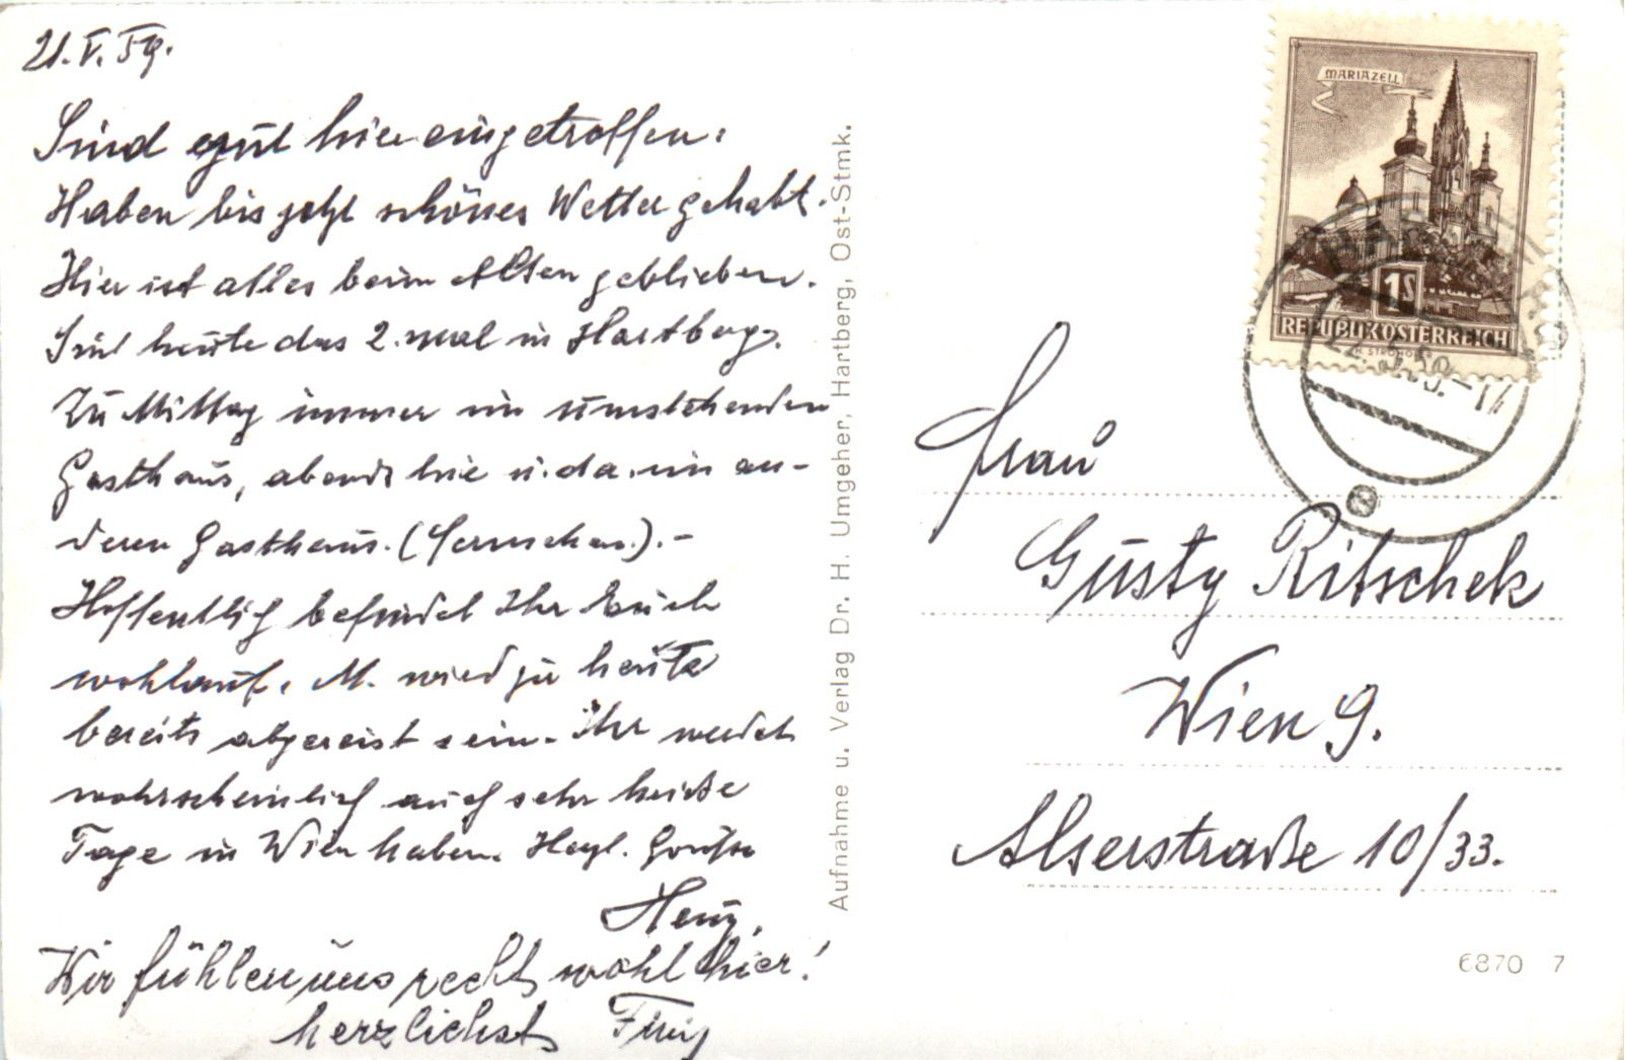 21.V.59.
Sind gut hier eingetroffen.
Haben bis jetzt schönes Wetter gehabt.
Hier ist alles beim Alten geblieben.
Sind heute das 2. mal in Hartberg.
Zu Mittag immer im umstehenden
Gasthaus, abends hie u. da im an-
deren Gasthaus.
Hoffentlich befindet Ihr Euch
wohlauf. M. wird ja heute
bereits abgereist sein. Ihr werdet
wahrscheinlich auch sehr heiße
Tage in Wien haben. Herzl. Grüße
Wir fühlen uns recht wohl hier!
herzlichst
Aufnahme u. Verlag Dr. H. Umgeher, Hartberg, Ost-Stmk.
MARIAZELL
1S
REPUBLIK ÖSTERREICH
Frau
Gusty Ritschek
Wien 9.
Alserstraße 10/33.
6870 7